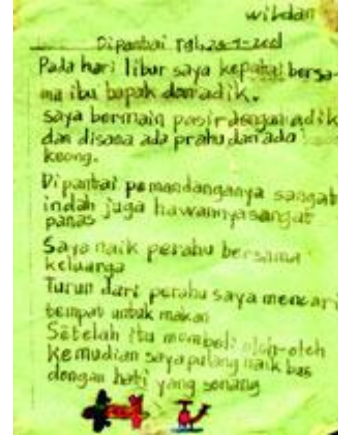 wildan
Dipantai Tgl
Pada hari libur saya kepantai bersa-
ma ibu bapak dan adik.
saya bermain pasir dengan adik
dan disana ada prahu dan ada
keong.
Dipantai pemandanganya sangat
indah juga hawannya sangat
panas
Saya naik perahu bersama
keluarga
Turun dari perahu saya mencari
tempat untuk makan
Setelah itu membeli oleh-oleh
Kemudian saya pulang naik bus
dengan hati yang senang